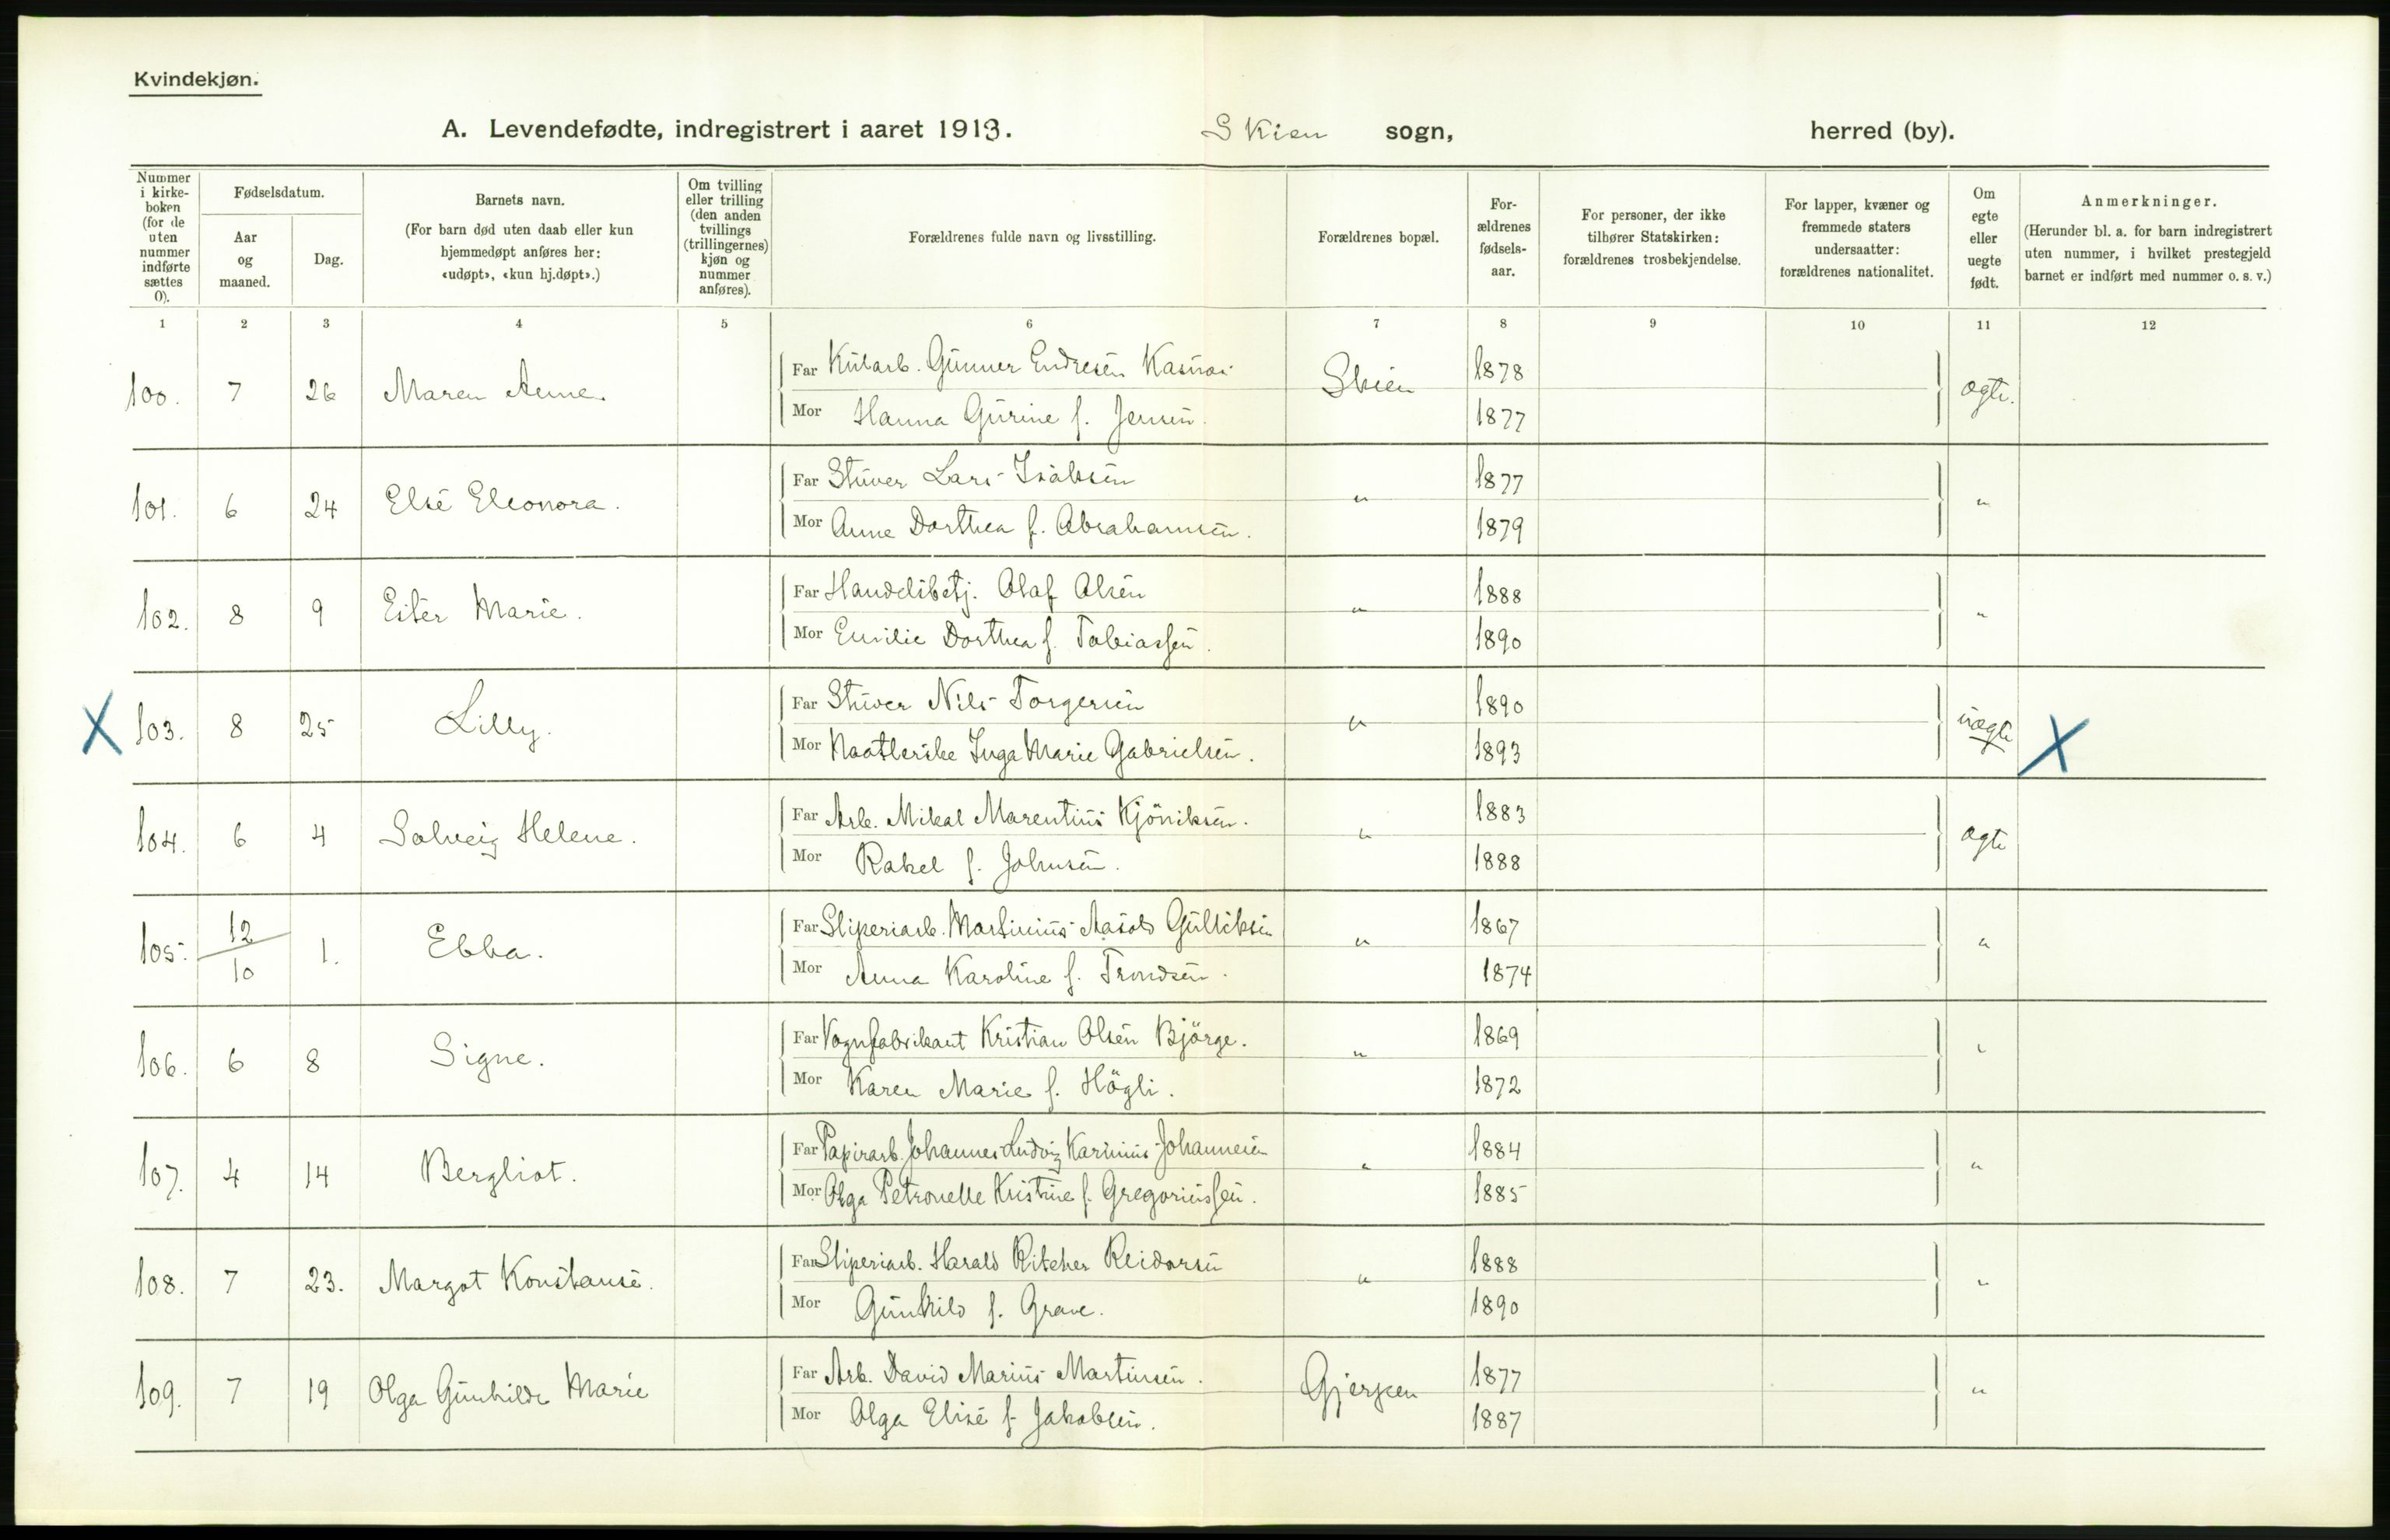 Kvindekjøn.
A. Levendefødte, indregistrert i aaret 1913. Skien sogn, herred (by).
Nummer i kirkeboken (for de uten nummer indførte sættes 0).
Fødselsdatum.
Aar og maaned.
Dag.
Barnets navn.
(For barn død uten daab eller kun hjemmedøpt anføres her: «udøpt», «kun hj.døpt».)
Om tvilling eller trilling (den anden tvillings (trillingernes) kjøn og nummer anføres).
Forældrenes fulde navn og livsstilling.
Forældrenes bopæl.
Forældrenes fødselsaar.
For personer, der ikke tilhører Statskirken: forældrenes trosbekjendelse.
For lapper, kvæner og fremmede staters undersaatter: forældrenes nationalitet.
Om egte eller uegte født.
Anmerkninger.
(Herunder bl. a. for barn indregistrert uten nummer, i hvilket prestegjeld barnet er indført med nummer o. s. v.)
1 2 3 4 5 6 7 8 9 10 11 12
100. 7 26 Maren Anne. Far Gunner Endresen Skien 1878 ægte.
Mor Hanna Gurine f. Jensen. 1877
101. 6 24 Else Eleonora. Far Stuver Lars Isaksen " 1877 "
Mor Anne Dorthea f. Abrahamsen. 1879
102. 8 9 Ester Marie. Far Handelsbetj. Olaf Olsen " 1888 "
Mor Emilie Dorthea f. Tobiassen. 1890
X 103. 8 25 Lilly. Far Stuver Nils Torgersen " 1890 uægte X
Mor Inga Marie Gabrielsen. 1893
104. 6 4 Solveig Helene. Far Arb. Mikal Marentius Kjöniksen. " 1883 ægte
Mor Rakel f. Johnsen. 1888
105. 12/10 1. Ebba. Far Sliperiarb. Martinius Aasold Gulliksen " 1867 "
Mor Anna Karoline f. Trondsen. 1874
106. 6 8 Signe. Far Vognfabrikant Kristian Olsen Björge. " 1869 "
Mor Karen Marie f. Högli. 1872
107. 4 14 Bergliot. Far Papirarb. Johannes Ludvig Karinius Johannesen " 1884 "
Mor Olga Petronelle Kristine f. Gregoriussen. 1885
108. 7 23. Margot Konstanse. Far Sliperiarb. Harald Ritcher Reidarsen " 1888 "
Mor Gunhild f. Grave. 1890
109. 7 19 Olga Gunhilde Marie Far Arb. David Marius Martinsen. Gjerpen 1877 "
Mor Olga Elise f. Jakobsen. 1887